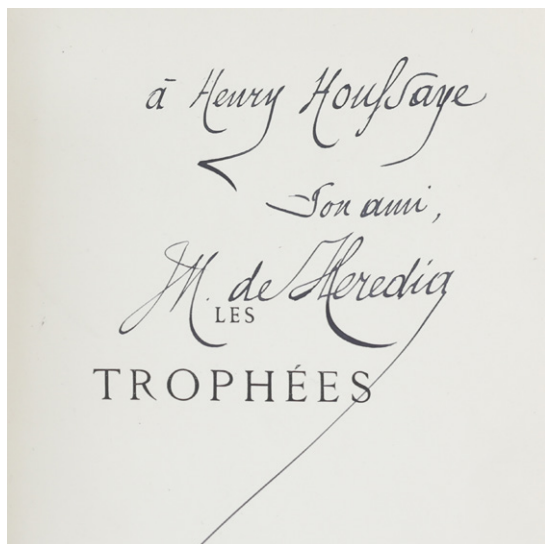 à Henry Houssaye
Son ami,
JM. de Heredia
LES
TROPHÉES